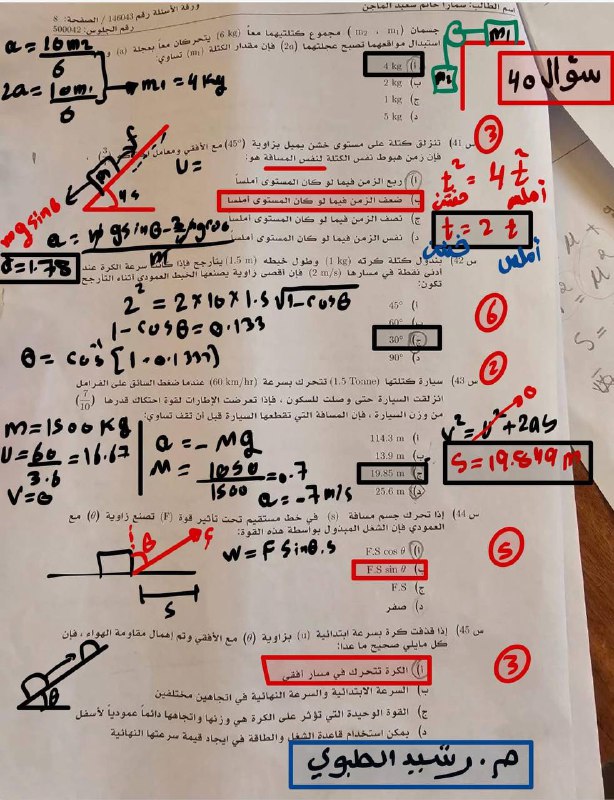 اسم الطالب: سمارا حاتم سعيد الماجن
ورقة الأسئلة رقم 146043 / الصفحة: 8
رقم الجلوس: 500042
سؤال 40
جسمان (m₁ ، m₂) مجموع كتلتيهما معاً (6 kg) يتحركان معاً بعجلة (a)
استبدال مواقعهما تصبح عجلتهما (2a) فإن مقدار الكتلة (m₁) تساوي:
أ) 4 kg
ب) 2 kg
ج) 1 kg
د) 5 kg
a = 10m₂/6
2a = 10m₁/6
m₁ = 4 kg
m₁
س 41) تنزلق كتلة على مستوى خشن يميل بزاوية (45°) مع الأفقي ومعامل
فإن زمن هبوط نفس الكتلة لنفس المسافة هو:
أ) ربع الزمن فيما لو كان المستوى أملساً
ب) ضعف الزمن فيما لو كان المستوى أملسا
ج) نصف الزمن فيما لو كان المستوى أملسا
د) نفس الزمن فيما لو كان المستوى أملساً
3
f
m
45
mg sinθ
U =
t² = 4 t²
خشن
أملس
t = 2 t
خشن
أملس
a = 1.78
س 42) بندول كتلة كرته (1 kg) وطول خيطه (1.5 m) يتأرجح فإذا كانت سرعة الكرة عند
أدنى نقطة في مسارها (2 m/s) فإن أقصى زاوية يصنعها الخيط العمودي أثناء التأرجح
تكون:
أ) 45°
ب) 60°
ج) 30°
د) 90°
6
2² = 2×10×1.5 √1-cosθ
1 - cosθ = 0.133
θ = cos⁻¹[1-0.1333]
س 43) سيارة كتلتها (1.5 Tonne) تتحرك بسرعة (60 km/hr) عندما ضغط السائق على الفرامل
انزلقت السيارة حتى وصلت للسكون ، فإذا تعرضت الإطارات لقوة احتكاك قدرها (7/10)
من وزن السيارة ، فإن المسافة التي تقطعها السيارة قبل أن تقف تساوي:
أ) 114.3 m
ب) 13.9 m
ج) 19.85 m
د) 25.6 m
2
m = 1500 kg
U = 60/3.6 = 16.67
V = 0
a = -Mg
M = 1050/1500 = 0.7
a = -7 m/s
v² = u² + 2as
0
S = 19.849 m
س 44) إذا تحرك جسم مسافة (s) في خط مستقيم تحت تأثير قوة (F) تصنع زاوية (θ) مع
العمودي فإن الشغل المبذول بواسطة هذه القوة:
أ) F.S cos θ
ب) F.S sin θ
ج) F.S
د) صفر
5
W = F sinθ.s
θ
F
S
س 45) إذا قذفت كرة بسرعة ابتدائية (u) بزاوية (θ) مع الأفقي وتم إهمال مقاومة الهواء ، فإن
كل مايلي صحيح ما عدا:
أ) الكرة تتحرك في مسار افقي
ب) السرعة الابتدائية والسرعة النهائية في اتجاهين مختلفين
ج) القوة الوحيدة التي تؤثر على الكرة هي وزنها واتجاهها دائماً عمودياً لأسفل
د) يمكن استخدام قاعدة الشغل والطاقة في ايجاد قيمة سرعتها النهائية
3
θ
م. رشيد الطبوي